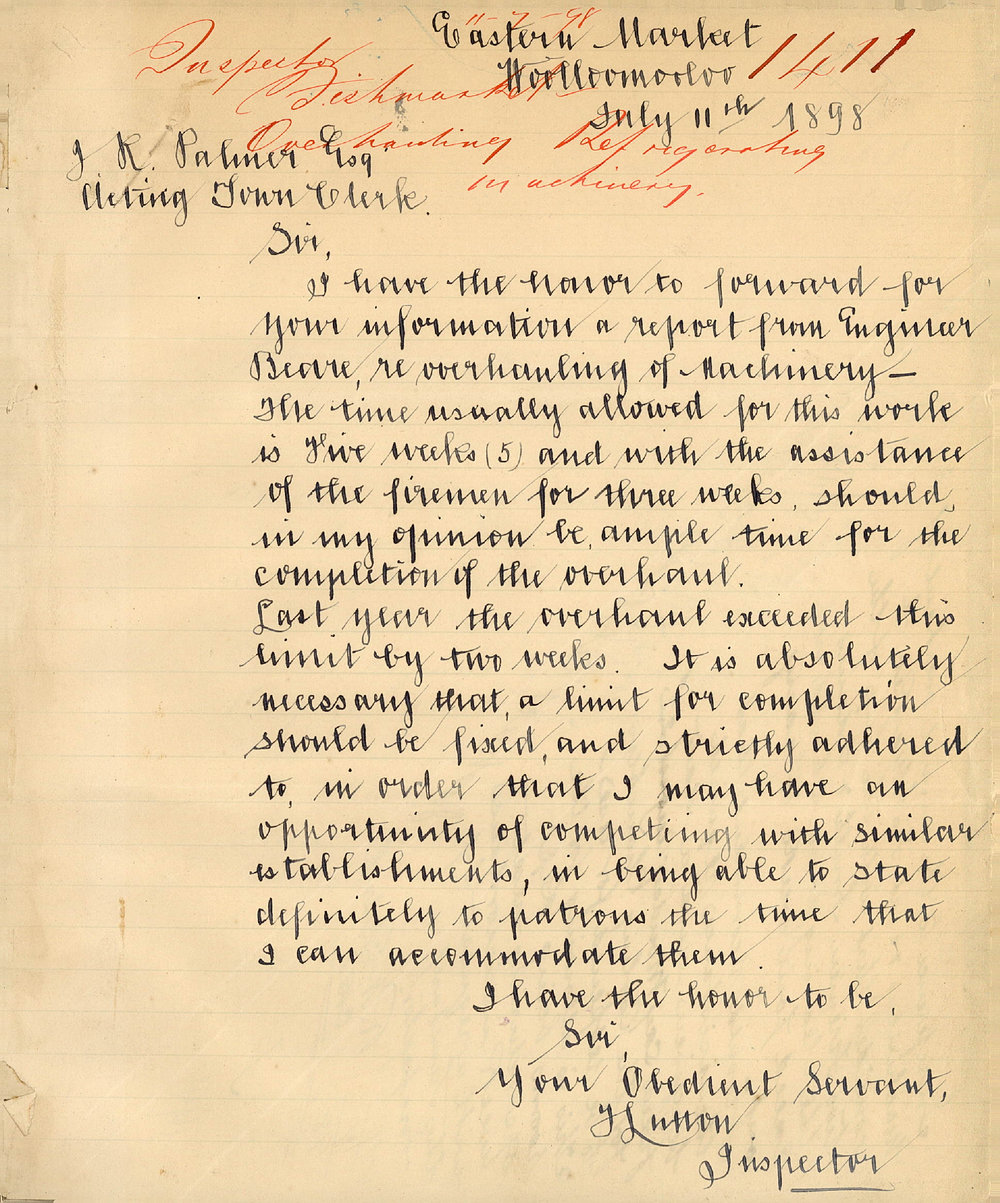 11-7-98
Eastern Market
1411
Inspector
Woolloomooloo
Fishmarket
July 11th 1898
Overhauling Refrigerating
machinery.
J R. Palmer Esq
Acting Town Clerk.
Sir,
I have the honor to forward for
your information a report from Engineer
Beare, re overhauling of Machinery —
The time usually allowed for this work
is Five weeks (5) and with the assistance
of the firemen for three weeks, should,
in my opinion be, ample time for the
completion of the overhaul.
Last year the overhaul exceeded this
limit by two weeks. It is absolutely
necessary that, a limit for completion
should be fixed, and strictly adhered
to, in order that I may have an
opportunity of competing with similar
establishments, in being able to state
definitely to patrons the time that
I can accommodate them.
I have the honor to be,
Sir,
Your Obedient Servant,
Inspector